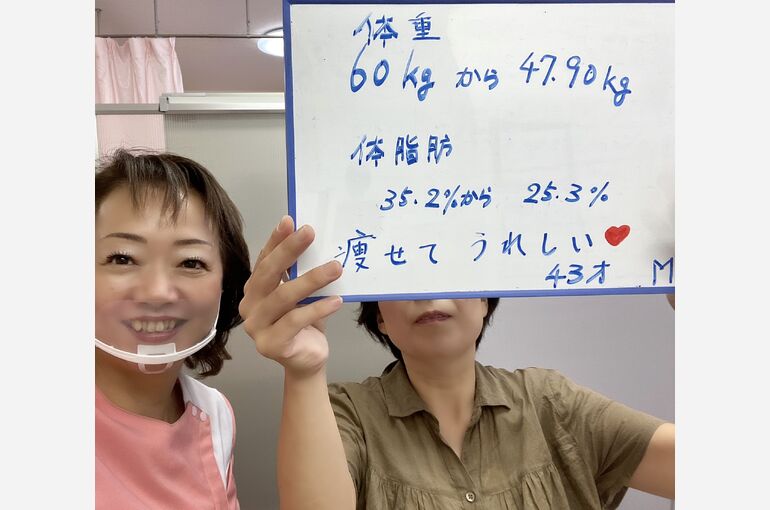 体重
60kgから47.90kg
体脂肪
35.2%から25.3%
痩せてうれしい♥
43才 M